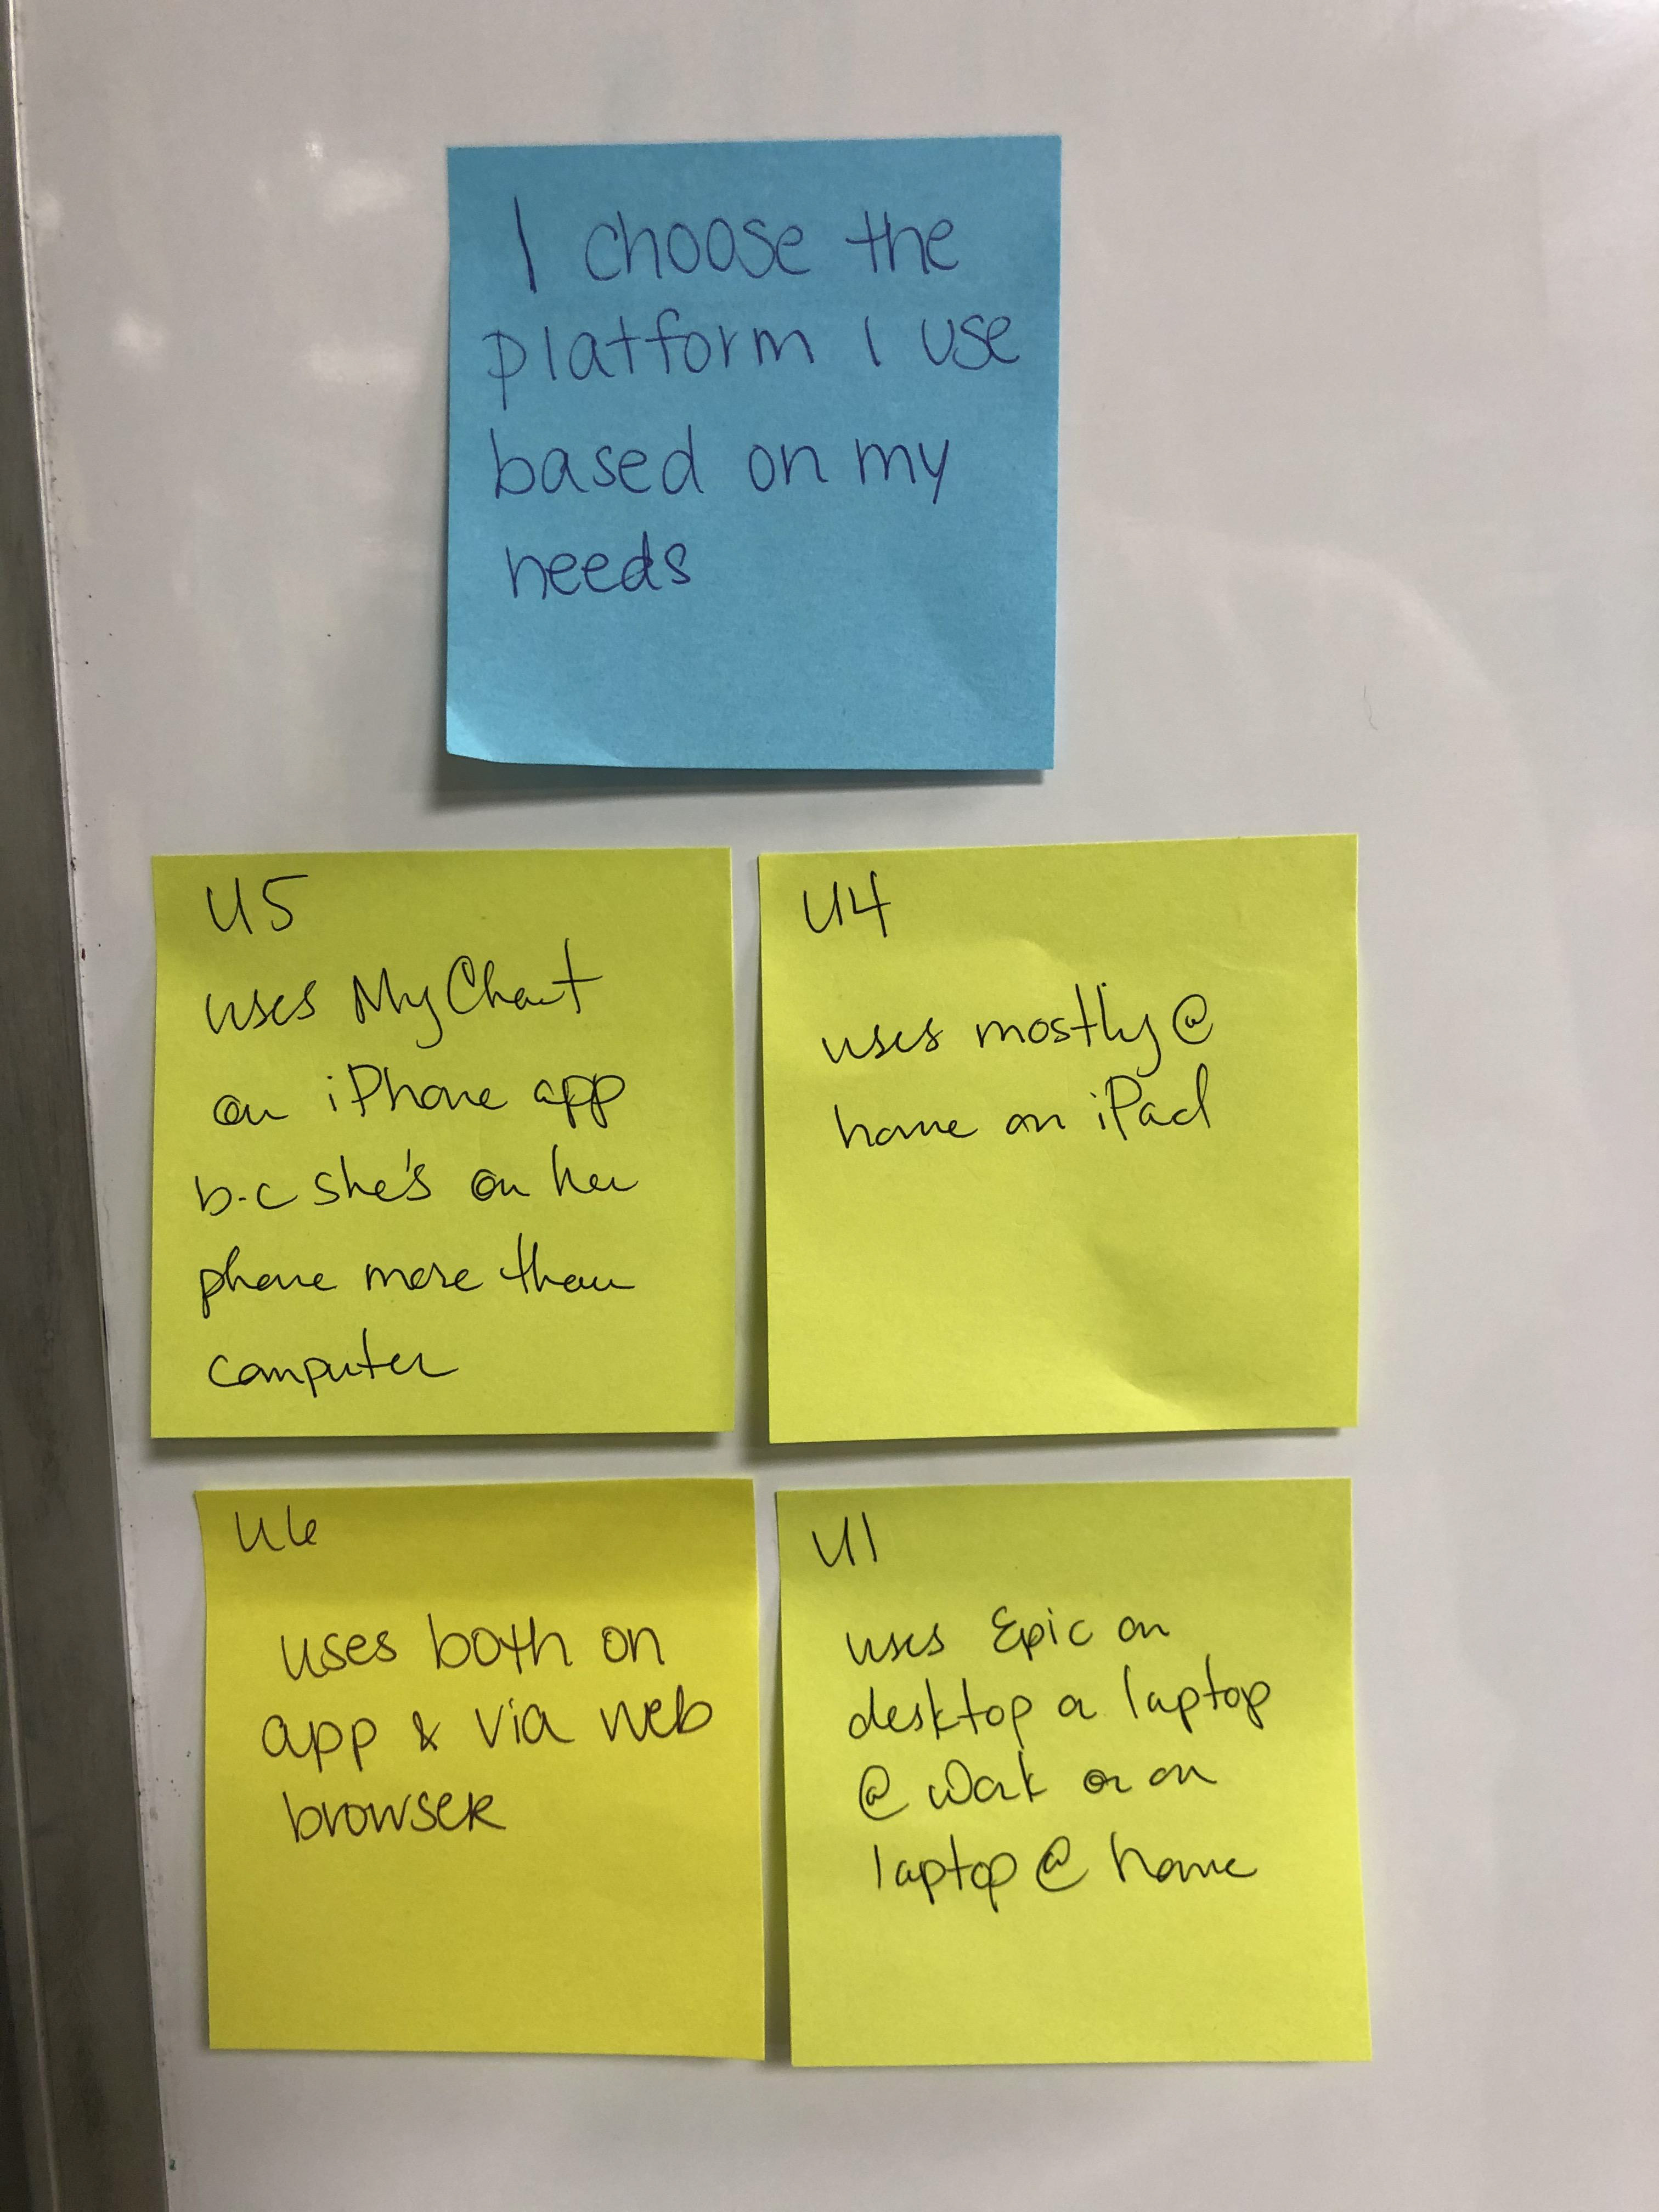 I choose the
platform I use
based on my
needs
U5
uses MyChart
on iPhone app
b.c she's on her
phone more than
computer
U4
uses mostly @
home on iPad
U6
uses both on
app & via web
browser
U1
uses Epic on
desktop a laptop
@ work or on
laptop @ home